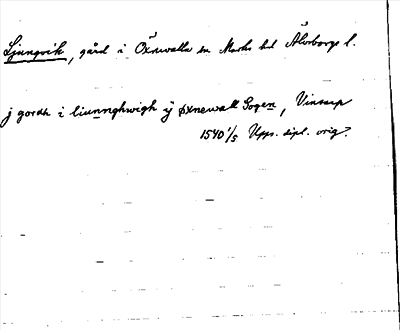 Ljungvik, gård i Öxnevalla sn Marks hd Älvsborgs l.
j gordh i liunnghwigh ÿ øxnewall Sogen, Vinsarp
1540 1/5 Upps. dipl. orig.